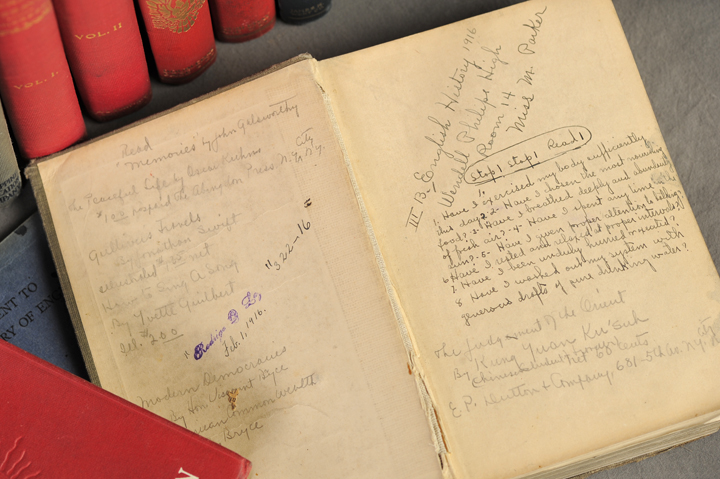 VOL. I.
VOL. II
Read
"Memories" by John Galsworthy
The Peaceful Life by Oscar Kuhns
$1.00 The Abingdon Press N.Y. City
N.Y.
Gullivers Travels
By Jonathon Swift
How to Sing A Song
By Yvette Guilbert
Ill. $2.00
"322-16"
Feb. 1, 1916.
Modern Democracies
By Hon Viscount Bryce
American Commonwealth
Bryce
III-B-English History 1916
Wendell Philips High
Room 14
Miss M. Parker
Stop! Stop! Read!
1. Have I exercised my body sufficiently
this day? 2- Have I chosen the most nourishing
food? 3- Have I breathed deeply and abundantly
of fresh air? 4- Have I spent any time in the
sun? 5- Have I given proper attention to bathing?
6 Have I rested and relaxed at proper intervals?
7 Have I been unduly hurried or tested?
8 Have I washed out my system with
generous drafts of pure drinking water?
The Judgement of the Orient
By Kung Yuan Ku'Suh
60 cents
E. P. Dutton & Company, 681-5th Av. N.Y. City
ENT TO
RY OF EN
N